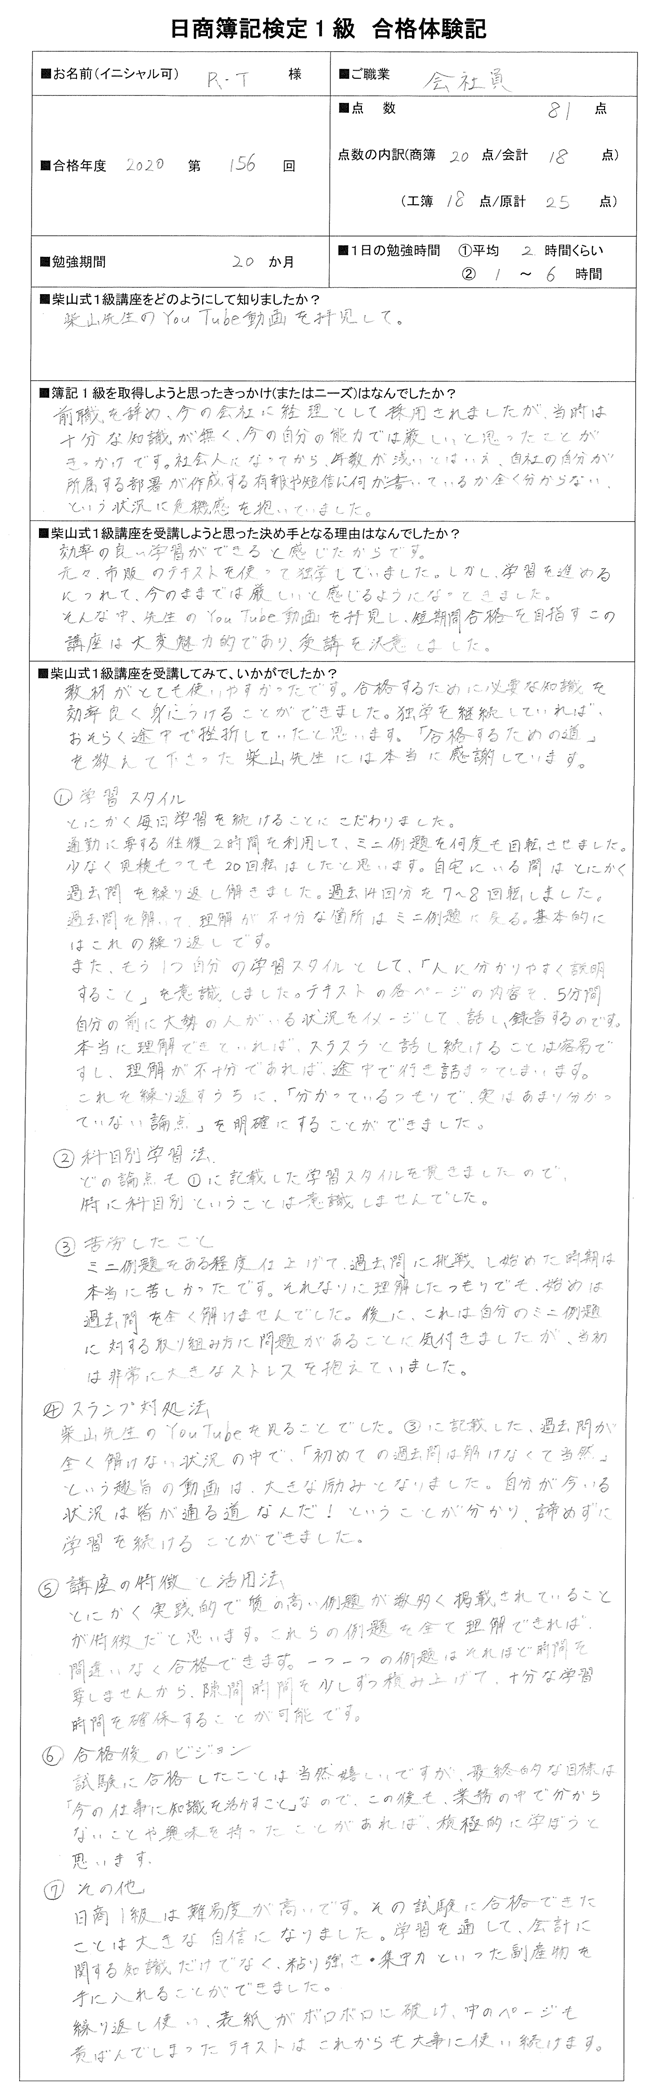 日商簿記検定1級 合格体験記
■お名前(イニシャル可) R・T 様
■ご職業 会社員
■合格年度 2020 第 156 回
■点 数 81 点
点数の内訳(商簿 20 点/会計 18 点)
(工簿 18 点/原計 25 点)
■勉強期間 20 か月
■1日の勉強時間 ①平均 2 時間くらい
② 1 ～ 6 時間
■柴山式1級講座をどのようにして知りましたか?
柴山先生のYouTube動画を拝見して。
■簿記1級を取得しようと思ったきっかけ(またはニーズ)はなんでしたか?
前職を辞め、今の会社に経理として採用されましたが、当時は
十分な知識が無く、今の自分の能力では厳しいと思ったことが
きっかけです。社会人になってから、年数が浅いとはいえ、自社の自分が
所属する部署が作成する有報や短信に何が書いているか全く分からない、
という状況に危機感を抱いていました。
■柴山式1級講座を受講しようと思った決め手となる理由はなんでしたか?
効率の良い学習ができると感じたからです。
元々、市販のテキストを使って独学していました。しかし、学習を進める
につれて、今のままでは厳しいと感じるようになってきました。
そんな中、先生のYouTube動画を拝見し、短期間合格を目指すこの
講座は大変魅力的であり、受講を決意しました。
■柴山式1級講座を受講してみて、いかがでしたか?
教材がとても使いやすかったです。合格するために必要な知識を
効率良く身につけることができました。独学を継続していれば、
おそらく途中で挫折していたと思います。「合格するための道」
を教えて下さった柴山先生には本当に感謝しています。
① 学習スタイル
とにかく毎日学習を続けることにこだわりました。
通勤に要する往復2時間を利用して、ミニ例題を何度も回転させました。
少なく見積もっても20回転はしたと思います。自宅にいる間はとにかく
過去問を繰り返し解きました。過去14回分を7～8回転しました。
過去問を解いて、理解が不十分な箇所はミニ例題に戻る。基本的に
はこれの繰り返しです。
また、もう1つ自分の学習スタイルとして、「人に分かりやすく説明
すること」を意識しました。テキストの各ページの内容を、5分間
自分の前に大勢の人がいる状況をイメージして、話し、録音するのです。
本当に理解できていれば、スラスラと話し続けることは容易で
すし、理解が不十分であれば、途中で行き詰まってしまいます。
これを繰り返すうちに、「分かっているつもりで、実はあまり分かっ
ていない論点」を明確にすることができました。
② 科目別学習法
どの論点も①に記載した学習スタイルを貫きましたので、
特に科目別ということは意識しませんでした。
③ 苦労したこと
ミニ例題をある程度仕上げて、過去問に挑戦し始めた時期は
本当に苦しかったです。それなりに理解したつもりでも、始めは
過去問を全く解けませんでした。後に、これは自分のミニ例題
に対する取り組み方に問題があることに気付きましたが、当初
は非常に大きなストレスを抱えていました。
④ スランプ対処法
柴山先生のYouTubeを見ることでした。③に記載した、過去問が
全く解けない状況の中で、「初めての過去問は解けなくて当然」
という趣旨の動画は、大きな励みとなりました。自分が今いる
状況は皆が通る道なんだ！ということが分かり、諦めずに
学習を続けることができました。
⑤ 講座の特徴と活用法
とにかく実践的で質の高い例題が数多く掲載されていること
が特徴だと思います。これらの例題を全て理解できれば、
間違いなく合格できます。一つ一つの例題はそれほど時間を
要しませんから、隙間時間を少しずつ積み上げて、十分な学習
時間を確保することが可能です。
⑥ 合格後のビジョン
試験に合格したことは当然嬉しいですが、最終的な目標は
「今の仕事に知識を活かすこと」なので、この後も、業務の中で分から
ないことや興味を持ったことがあれば、積極的に学ぼうと
思います。
⑦ その他
日商1級は難易度が高いです。その試験に合格できた
ことは大きな自信になりました。学習を通して、会計に
関する知識だけでなく、粘り強さ・集中力といった副産物を
手に入れることができました。
繰り返し使い、表紙がボロボロに破け、中のページも
黄ばんでしまったテキストはこれからも大事に使い続けます。